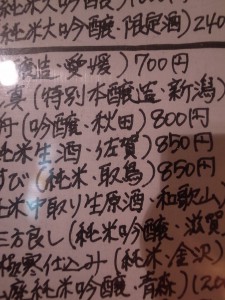 純米大吟醸
純米大吟醸・限定酒) 240
醸造・愛媛) 700円
真 (特別本醸造・新潟)
舟 (吟醸・秋田) 800円
純米生酒・佐賀) 850円
すび (純米・鳥取) 850円
純米中取り生原酒・和歌山
三方良し (純米吟醸・滋賀
極寒仕込み (純米・金沢)
純米吟醸・青森) 120